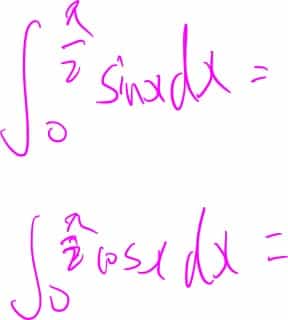 ∫₀^{π/2} sinx dx =
∫₀^{π/2} cosx dx =